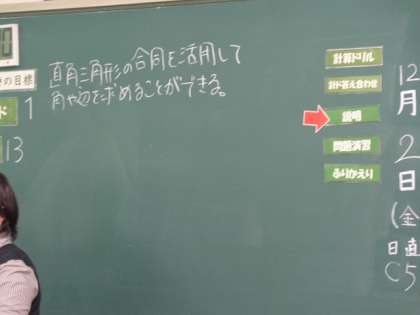 直角三角形の合同を活用して
角や辺を求めることができる。
の目標
ド 1
13
計算ドリル
計ド答え合わせ
説明
問題演習
ふりかえり
12
月
2
日
(金
日直
C5